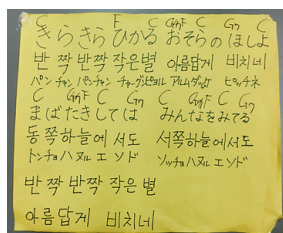 C F C G7 F C G7 C
きらきらひかる おそらのほしよ
반짝 반짝 작은별 아름답게 비치네
パンチャン パンチャン チャグンピョル アルムダッケ ピッチネ
C G7 F C G7 C G7 F C G7
まばたきしては みんなをみてる
동쪽하늘에서도 서쪽하늘에서도
トンチョハヌルエソド ソッチョハヌルエソド
반짝 반짝 작은 별
아름답게 비치네